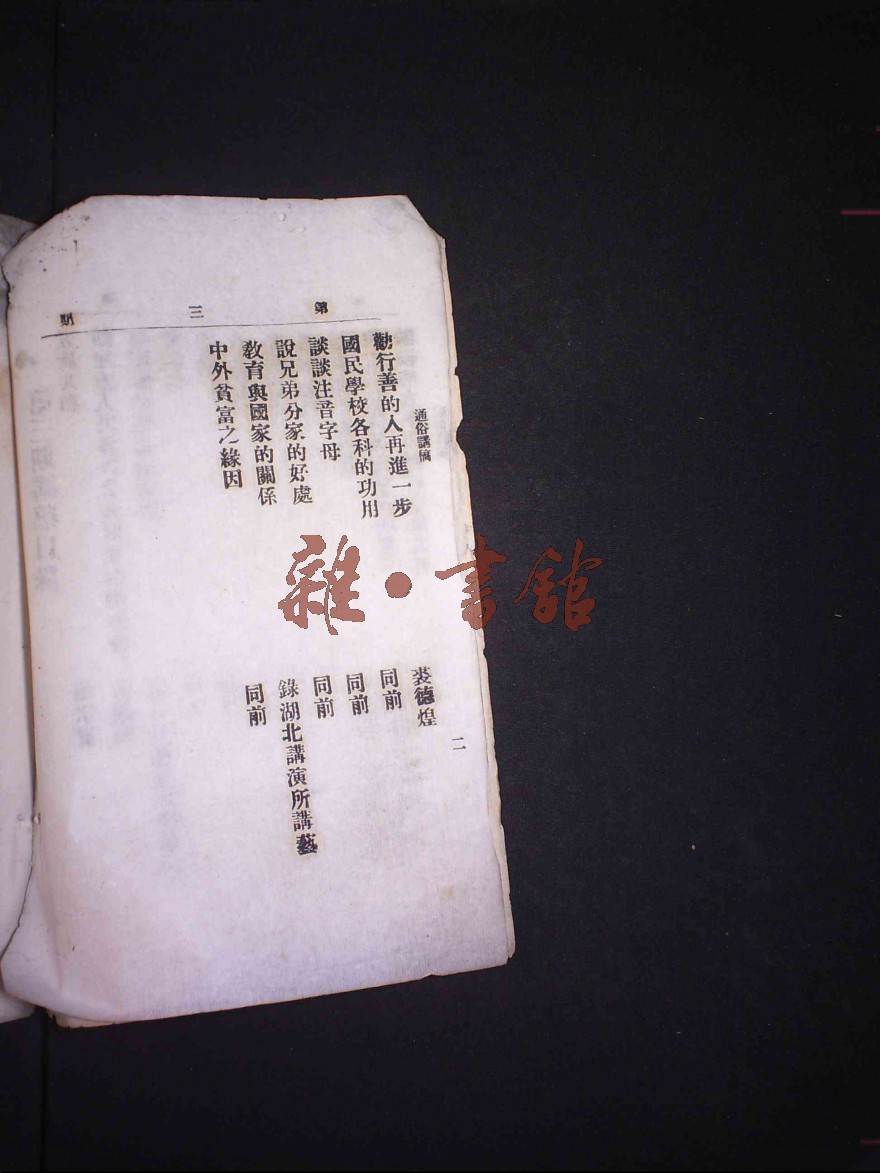 第三期
通俗講稿
二
勸行善的人再進一步 裘德煌
國民學校各科的功用 同前
談談注音字母 同前
說兄弟分家的好處 同前
敎育與國家的關係 錄湖北講演所講藝
中外貧富之緣因 同前
雜·書館